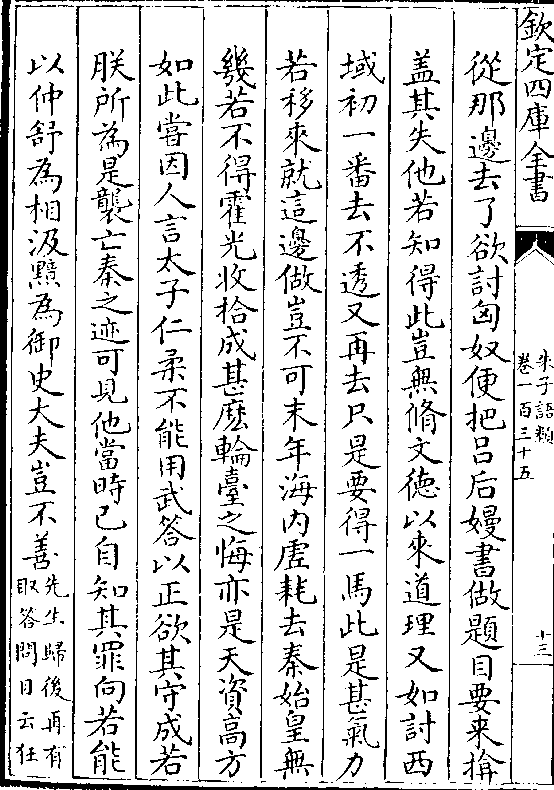 欽定四庫全書
朱子語類
卷一百三十五
十三
從那邊去了欲討匈奴便把吕后嫚書做題目要来揜
盖其失他若知得此豈無脩文德以来道理又如討西
域初一番去不透又再去只是要得一馬此是甚氣力
若移來就這邊做豈不可末年海内虚耗去秦始皇無
幾若不得霍光收拾成甚麽輪臺之悔亦是天資高方
如此嘗因人言太子仁柔不能用武答以正欲其守成若
朕所為是襲亡秦之迹可見他當時已自知其罪向若能
以仲舒為相汲黯為御史大夫豈不善
先生歸後再有
取答問目云狂